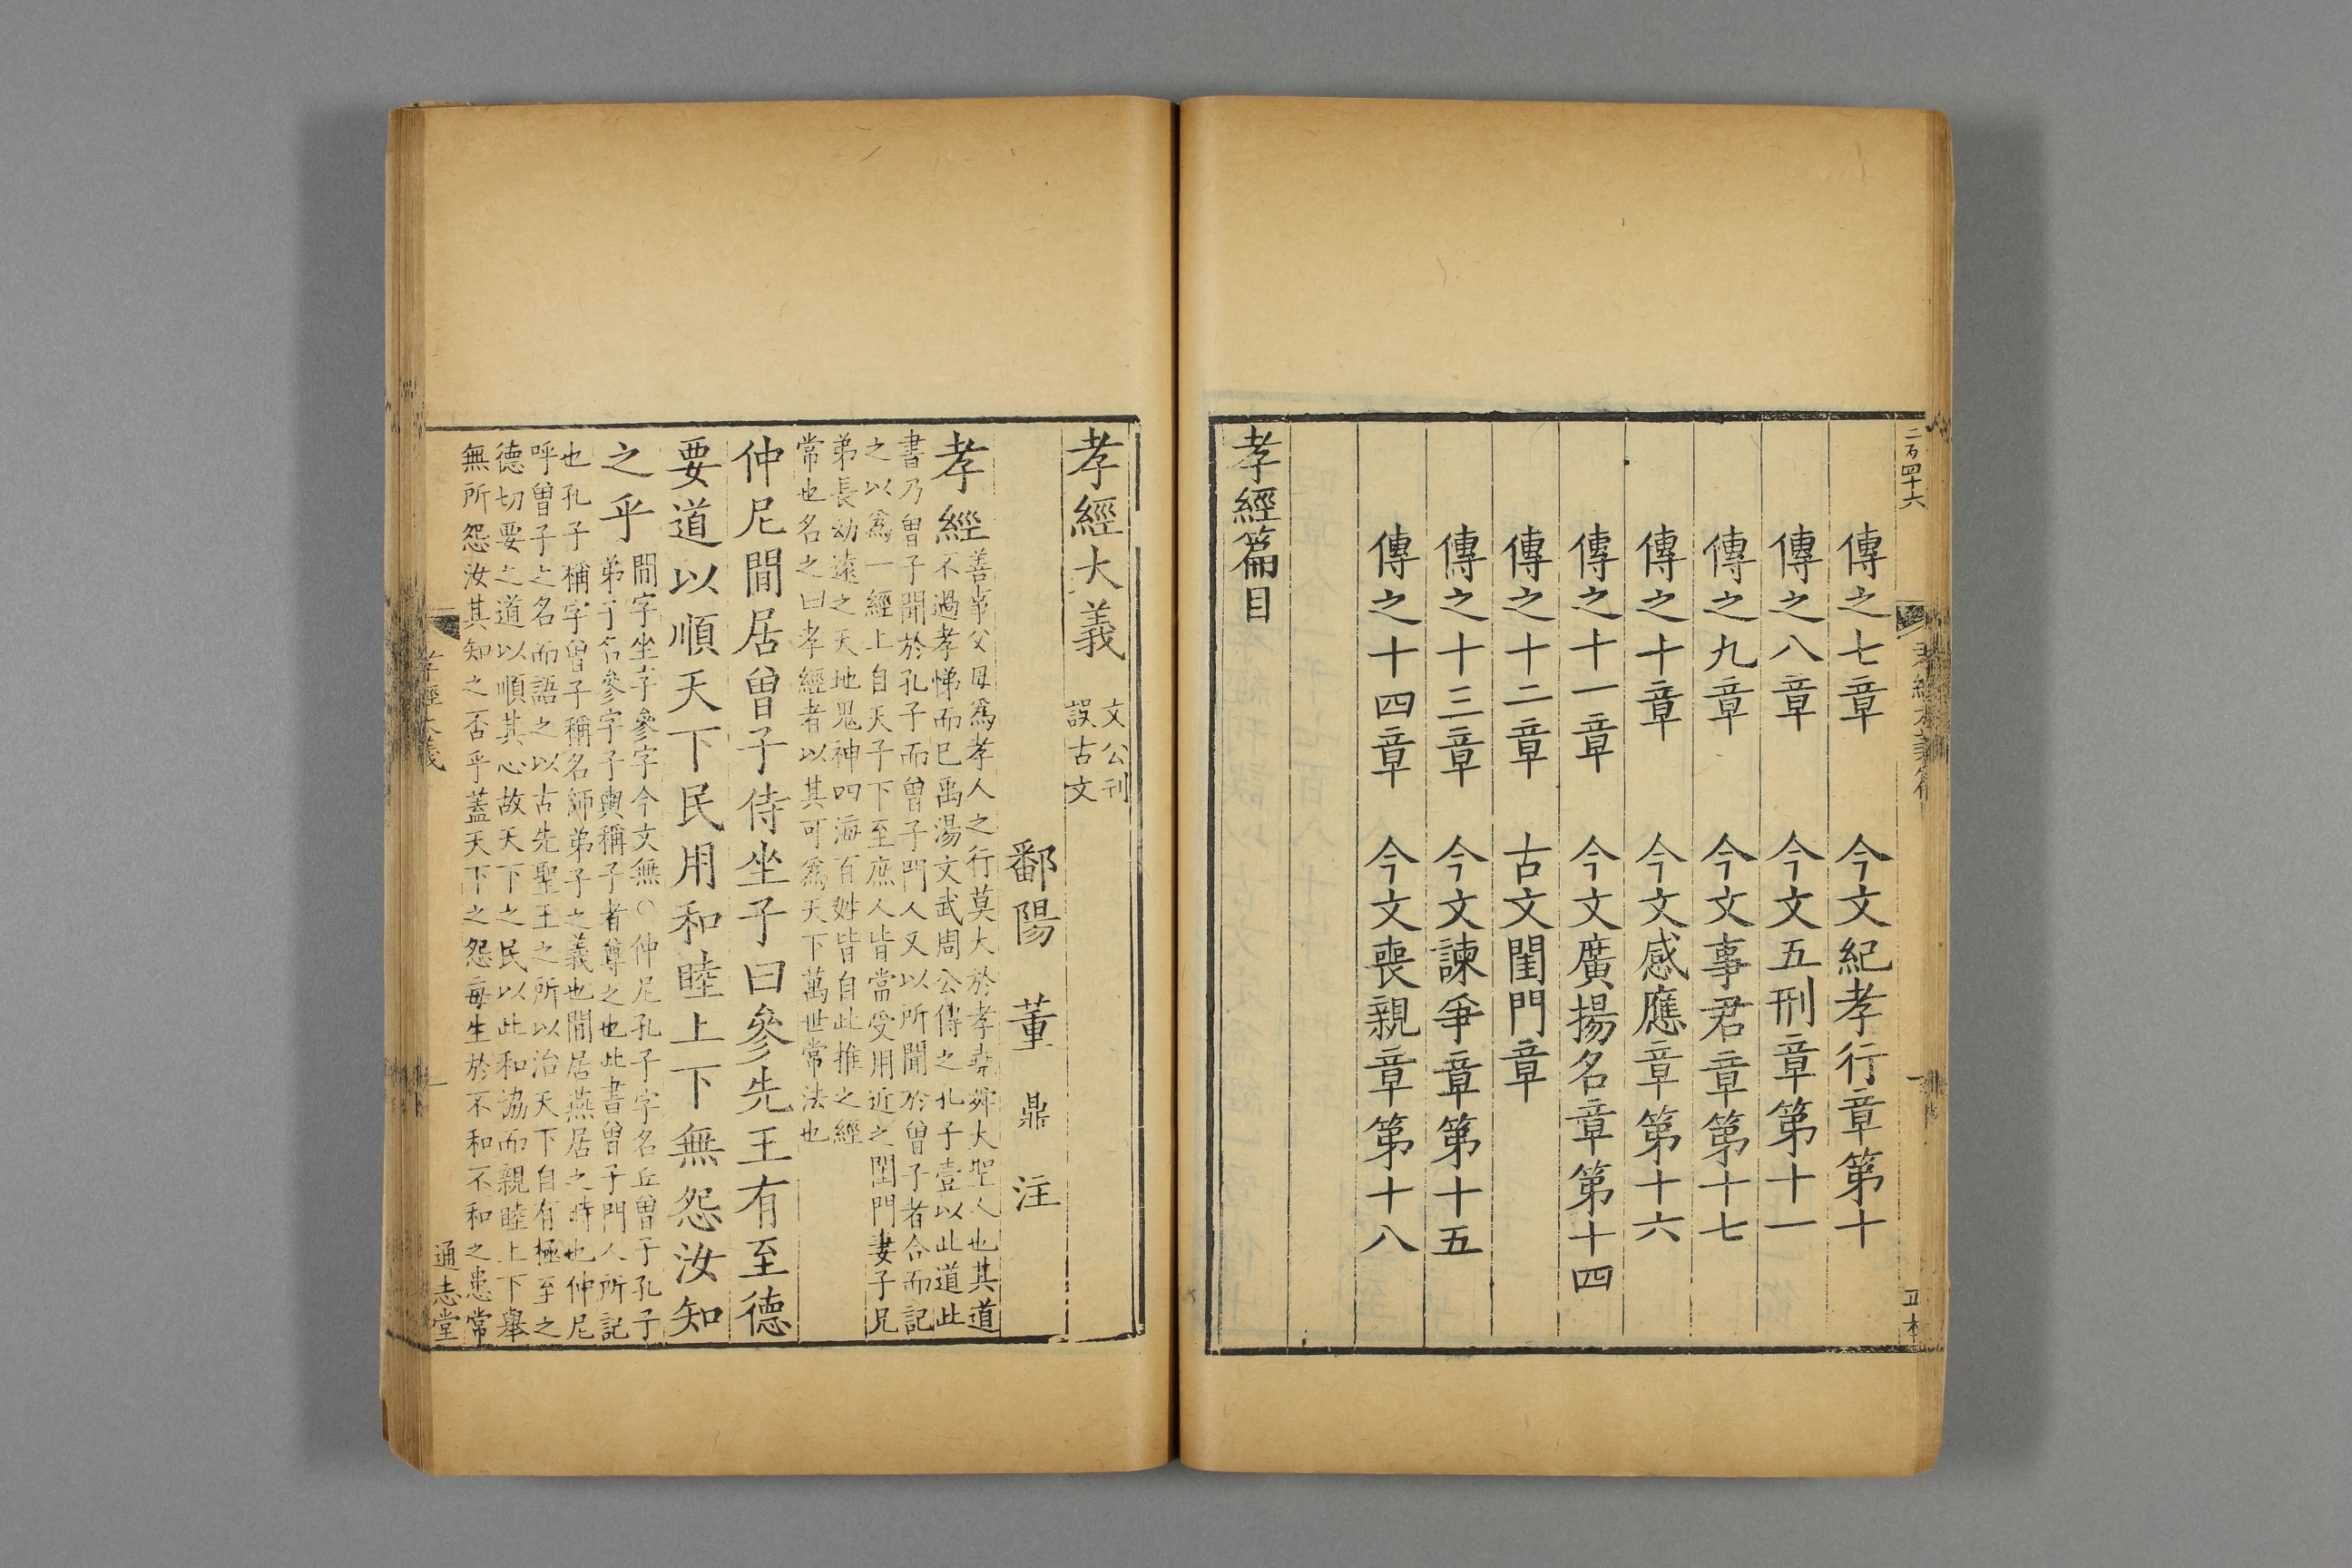 二百四十六
傳之七章 今文紀孝行章第十
傳之八章 今文五刑章第十一
傳之九章 今文事君章第十七
傳之十章 今文感應章第十六
傳之十一章 今文廣揚名章第十四
傳之十二章 古文閨門章
傳之十三章 今文諫爭章第十五
傳之十四章 今文喪親章第十八
孝經篇目
孝經大義 文公刊
誤古文
鄱陽 董 鼎 注
孝經 善事父母爲孝人之行莫大於孝堯舜大聖人也其道
不過孝悌而已禹湯文武周公傳之孔子壹以此道此
書乃曽子聞於孔子而曽子門人又以所聞於曽子者合而記
之以爲一經上自天子下至庶人皆當受用近之閨門妻子兄
弟長幼遠之天地鬼神四海百姓皆自此推之經
常也名之曰孝經者以其可爲天下萬世常法也
仲尼閒居曽子侍坐子曰參先王有至德
要道以順天下民用和睦上下無怨汝知
之乎 閒字坐字參字今文無○仲尼孔子字名丘曽子孔子
弟子名參字子輿稱子者尊之也此書曽子門人所記
也孔子稱字曽子稱名師弟子之義也閒居燕居之時也仲尼
呼曽子之名而語之以古先聖王之所以治天下自有極至之
德切要之道以順其心故天下之民以此和協而親睦上下舉
無所怨汝其知之否乎蓋天下之怨每生於不和不和之患常
孝經大義
通志堂